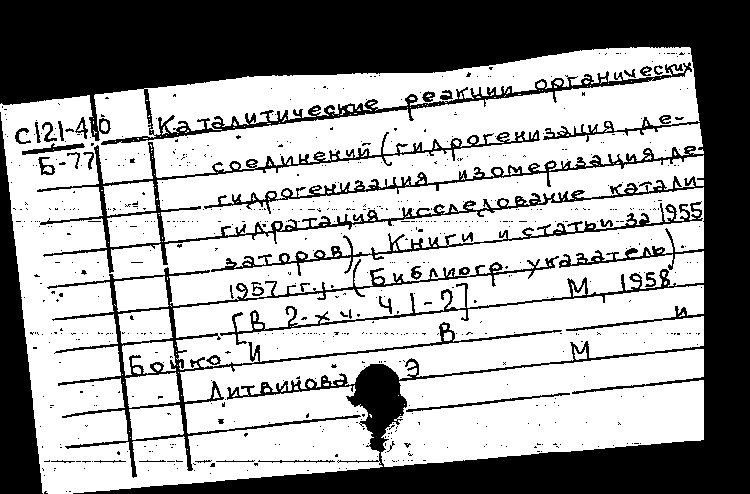 Каталитические реакции органических
С121-410
Б-77
соединений (гидрогенизация, де-
гидрогенизация, изомеризация, де-
гидратация, исследование катали-
заторов). [Книги и статьи за 1955
1957 гг.]. (Библиогр. указатель).
[В 2-х ч. Ч. 1-2]. М., 1958.
Бойко, И В и
Литвинова, Э М